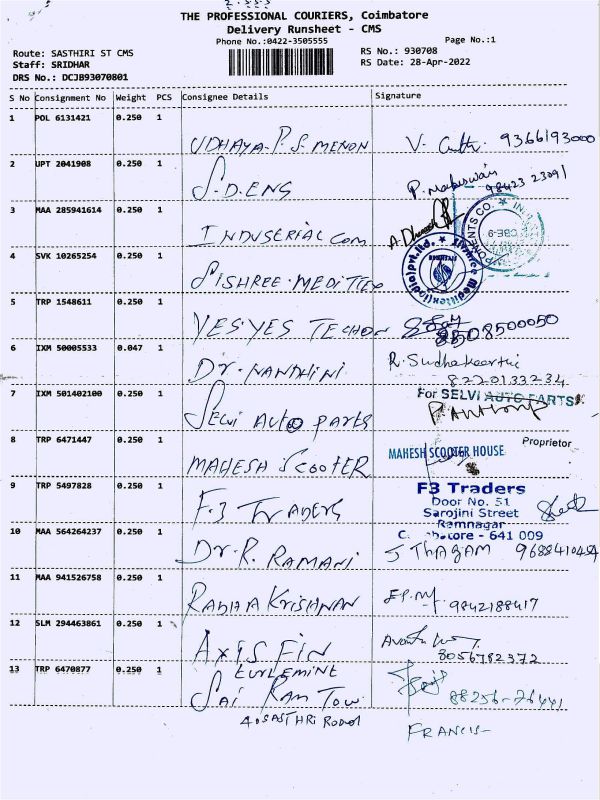 THE PROFESSIONAL COURIERS, Coimbatore
Delivery Runsheet - CMS
Phone No.:0422-3505555
Page No.:1
Route: SASTHIRI ST CMS
RS No.: 930708
Staff: SRIDHAR
RS Date: 28-Apr-2022
DRS No.: DCJB93070801
S No Consignment No Weight PCS Consignee Details Signature
1 POL 6131421 0.250 1
UDHAYA.P.S-MENON V. 9366193000
2 UPT 2041908 0.250 1
S.D.ENG P. Maheswari
98423 23091
3 MAA 285941614 0.250 1
INDUSERIAL Com A.Dhanesh
PONENTS CO. ★
CBE-9
4 SVK 10265254 0.250 1
SISHREE.MEDITTEX
5 TRP 1548611 0.250 1
YES.YES TECHON
9508500050
6 IXM 50005533 0.047 1
Dr.NANDHINI R. Sudhakeerthi
8220133234
7 IXM 501402100 0.250 1
For SELVI AUTO PARTS
Selvi Auto parts P.Anthony
8 TRP 6471447 0.250 1
Proprietor
MAHESH SCOOTER MAHESH SCOOTER HOUSE
9 TRP 5497828 0.250 1
F.3 TRADERS F3 Traders
Door No. 51
Sarojini Street
Ramnagar
- 641 009
10 MAA 564264237 0.250 1
Dr.R. RAMANI J THAGAM 9688410484
11 MAA 941526758 0.250 1
RADHA KRISHNAN 9842188417
12 SLM 294463861 0.250 1
AXIS FIN
8056782372
13 TRP 6470877 0.250 1
Sai Ram Tow. 88256-76441
4.SASTHRI Road
FRANCIS-